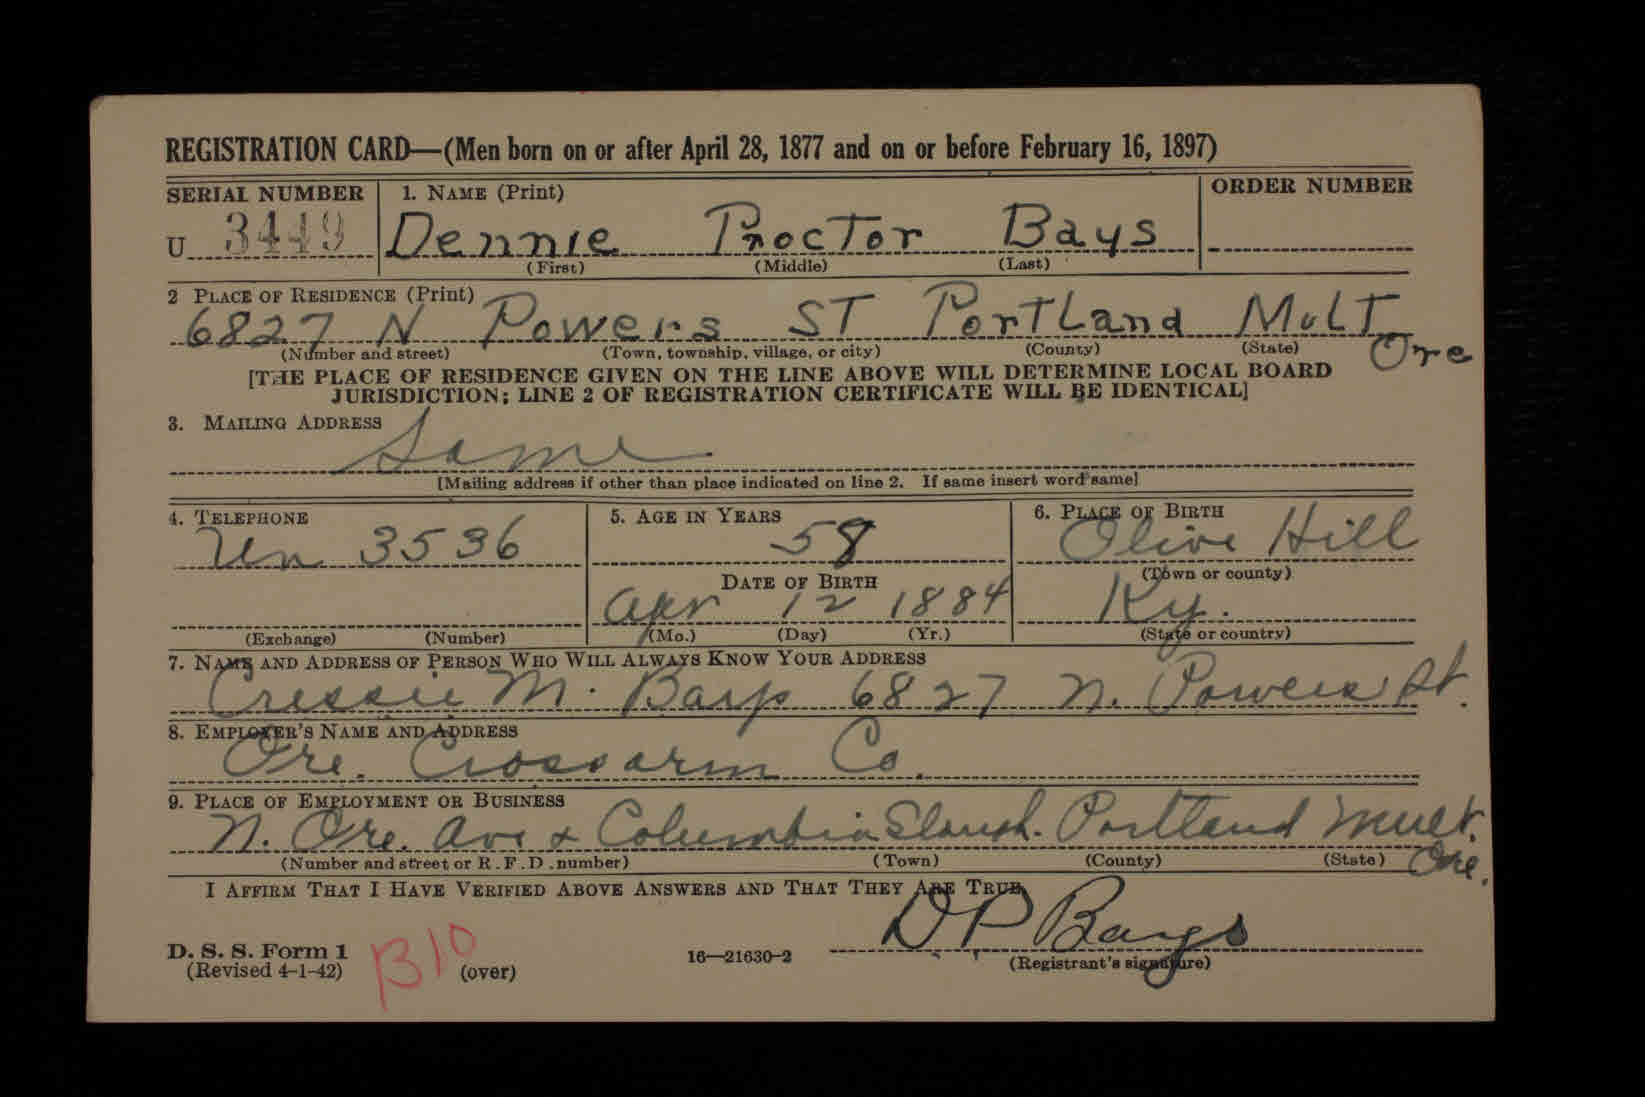 REGISTRATION CARD—(Men born on or after April 28, 1877 and on or before February 16, 1897)
SERIAL NUMBER 1. NAME (Print) ORDER NUMBER
U 3449 Dennie Proctor Bays
(First) (Middle) (Last)
2 PLACE OF RESIDENCE (Print)
6827 N Powers ST Portland Mult
Ore
(Number and street) (Town, township, village, or city) (County) (State)
[THE PLACE OF RESIDENCE GIVEN ON THE LINE ABOVE WILL DETERMINE LOCAL BOARD
JURISDICTION; LINE 2 OF REGISTRATION CERTIFICATE WILL BE IDENTICAL]
3. MAILING ADDRESS
Same
[Mailing address if other than place indicated on line 2. If same insert word same]
4. TELEPHONE 5. AGE IN YEARS 6. PLACE OF BIRTH
Un 3536 58 Olive Hill
DATE OF BIRTH (Town or county)
Apr 12 1884 Ky.
(Exchange) (Number) (Mo.) (Day) (Yr.) (State or country)
7. NAME AND ADDRESS OF PERSON WHO WILL ALWAYS KNOW YOUR ADDRESS
Cressie M. Bays 6827 N. Powers St.
8. EMPLOYER'S NAME AND ADDRESS
Ore. Crossarm Co.
9. PLACE OF EMPLOYMENT OR BUSINESS
N. Ore. Ave & Columbia Slough. Portland Mult.
Ore.
(Number and street or R. F. D. number) (Town) (County) (State)
I AFFIRM THAT I HAVE VERIFIED ABOVE ANSWERS AND THAT THEY ARE TRUE.
D P Bays
D. S. S. Form 1
(Revised 4-1-42) B10 (over) 16—21630-2 (Registrant's signature)